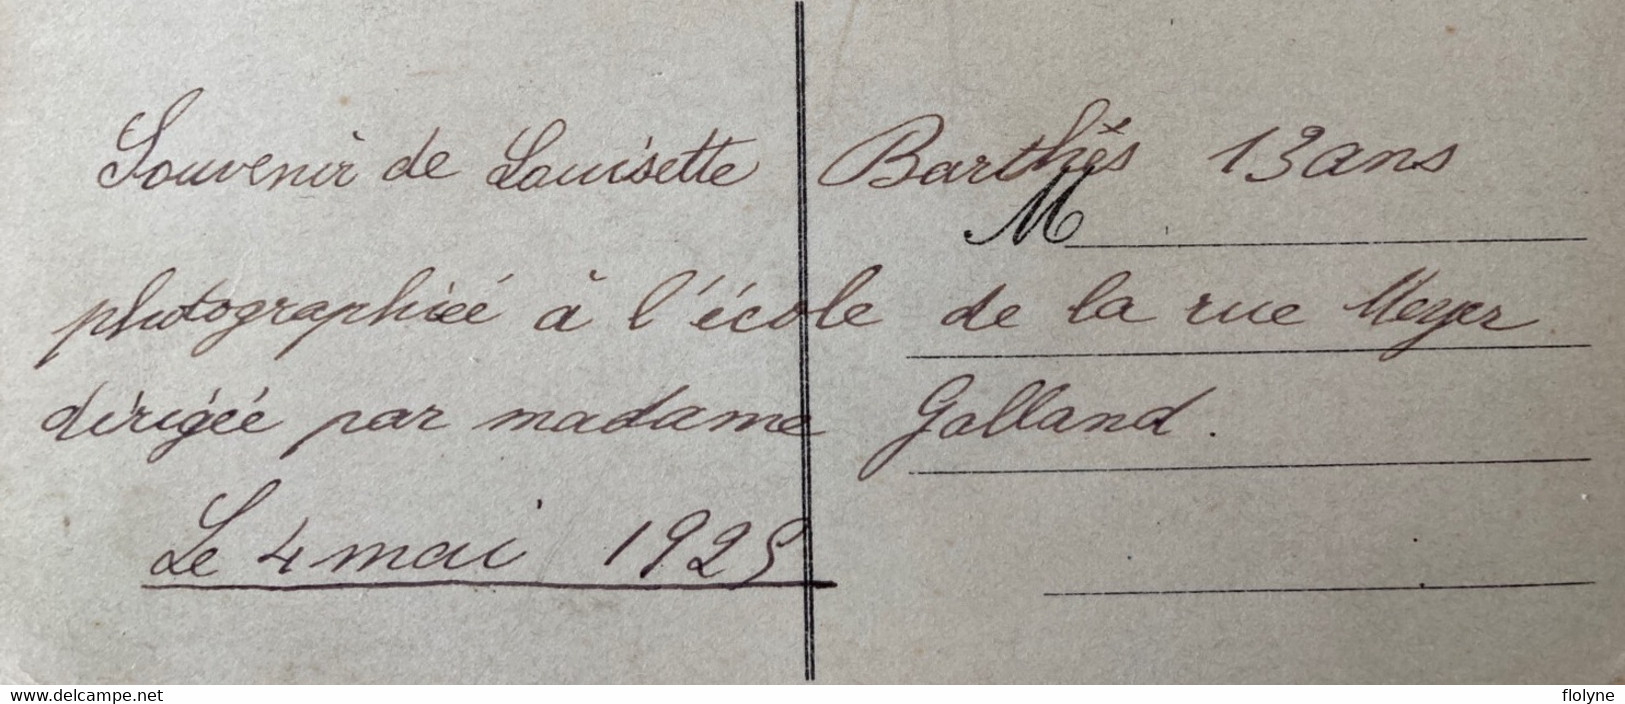 Souvenir de Louisette Barthès 13 ans
M
photographiée à l'école de la rue Meyer
dirigée par madame Galland.
Le 4 mai 1925
www.delcampe.net
flolyne